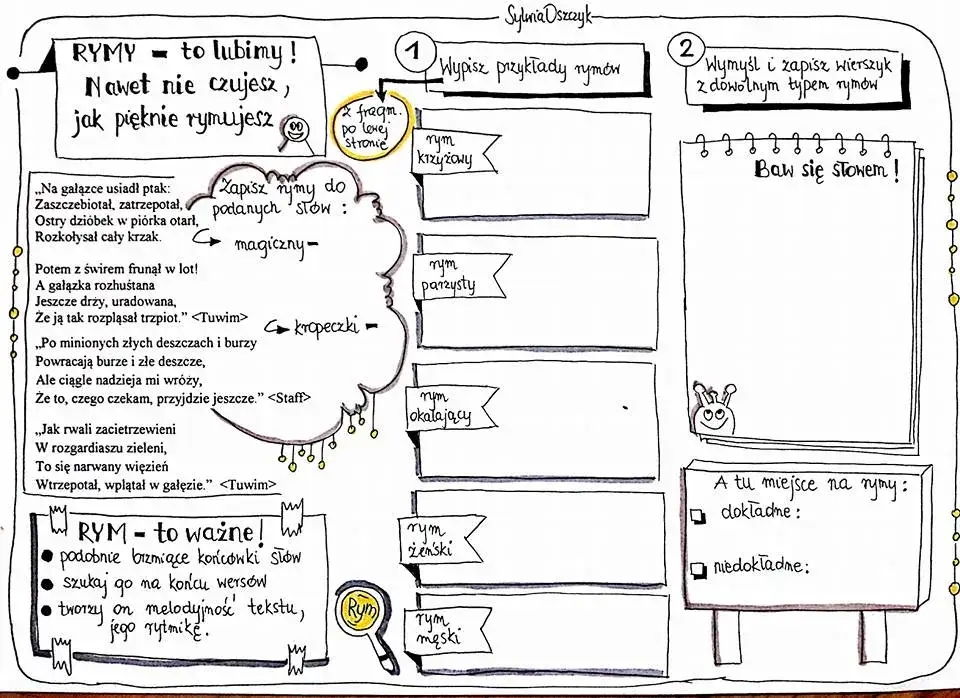 Sylwia Oszczyk
RYMY - to lubimy!
Nawet nie czujesz,
jak pięknie rymujesz
„Na gałązce usiadł ptak:
Zaszczebiotał, zatrzepotał,
Ostry dzióbek w piórka otarł,
Rozkołysał cały krzak.
Potem z świrem frunął w lot!
A gałązka rozhuśtana
Jeszcze drży, uradowana,
Że ją tak rozpląsał trzpiot.” <Tuwim>
„Po minionych złych deszczach i burzy
Powracają burze i złe deszcze,
Ale ciągle nadzieja mi wróży,
Że to, czego czekam, przyjdzie jeszcze.” <Staff>
„Jak rwali zacietrzewieni
W rozgardiaszu zieleni,
To się narwany więzień
Wtrzepotał, wplątał w gałęzie.” <Tuwim>
Zapisz rymy do
podanych słów:
magiczny-
kropeczki-
RYM - to ważne!
podobnie brzmiące końcówki słów
szukaj go na końcu wersów
tworzy on melodyjność tekstu,
jego rytmikę.
Rym
1
Wypisz przykłady rymów
z fragm.
po lewej
stronie
rym
krzyżowy
rym
parzysty
rym
okalający
rym
żeński
rym
męski
2
Wymyśl i zapisz wierszyk
z dowolnym typem rymów
Baw się słowem!
A tu miejsce na rymy:
dokładne:
niedokładne: